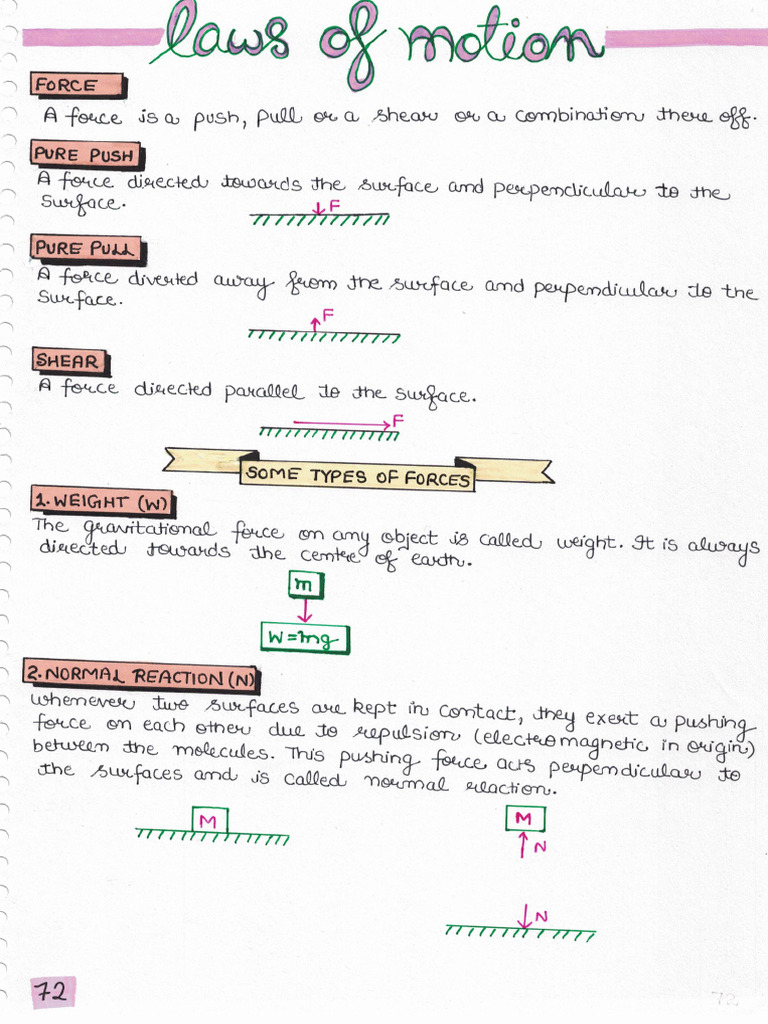 laws of motion
FORCE
A force is a push, pull or a shear or a combination there off.
PURE PUSH
A force directed towards the surface and perpendicular to the
surface.
F
PURE PULL
A force diverted away from the surface and perpendicular to the
surface.
F
SHEAR
A force directed parallel to the surface.
F
SOME TYPES OF FORCES
1. WEIGHT (W)
The gravitational force on any object is called weight. It is always
directed towards the centre of earth.
m
W = mg
2. NORMAL REACTION (N)
whenever two surfaces are kept in contact, they exert a pushing
force on each other due to repulsion (electromagnetic in origin)
between the molecules. This pushing force acts perpendicular to
the surfaces and is called normal reaction.
M
M
N
N
72
72